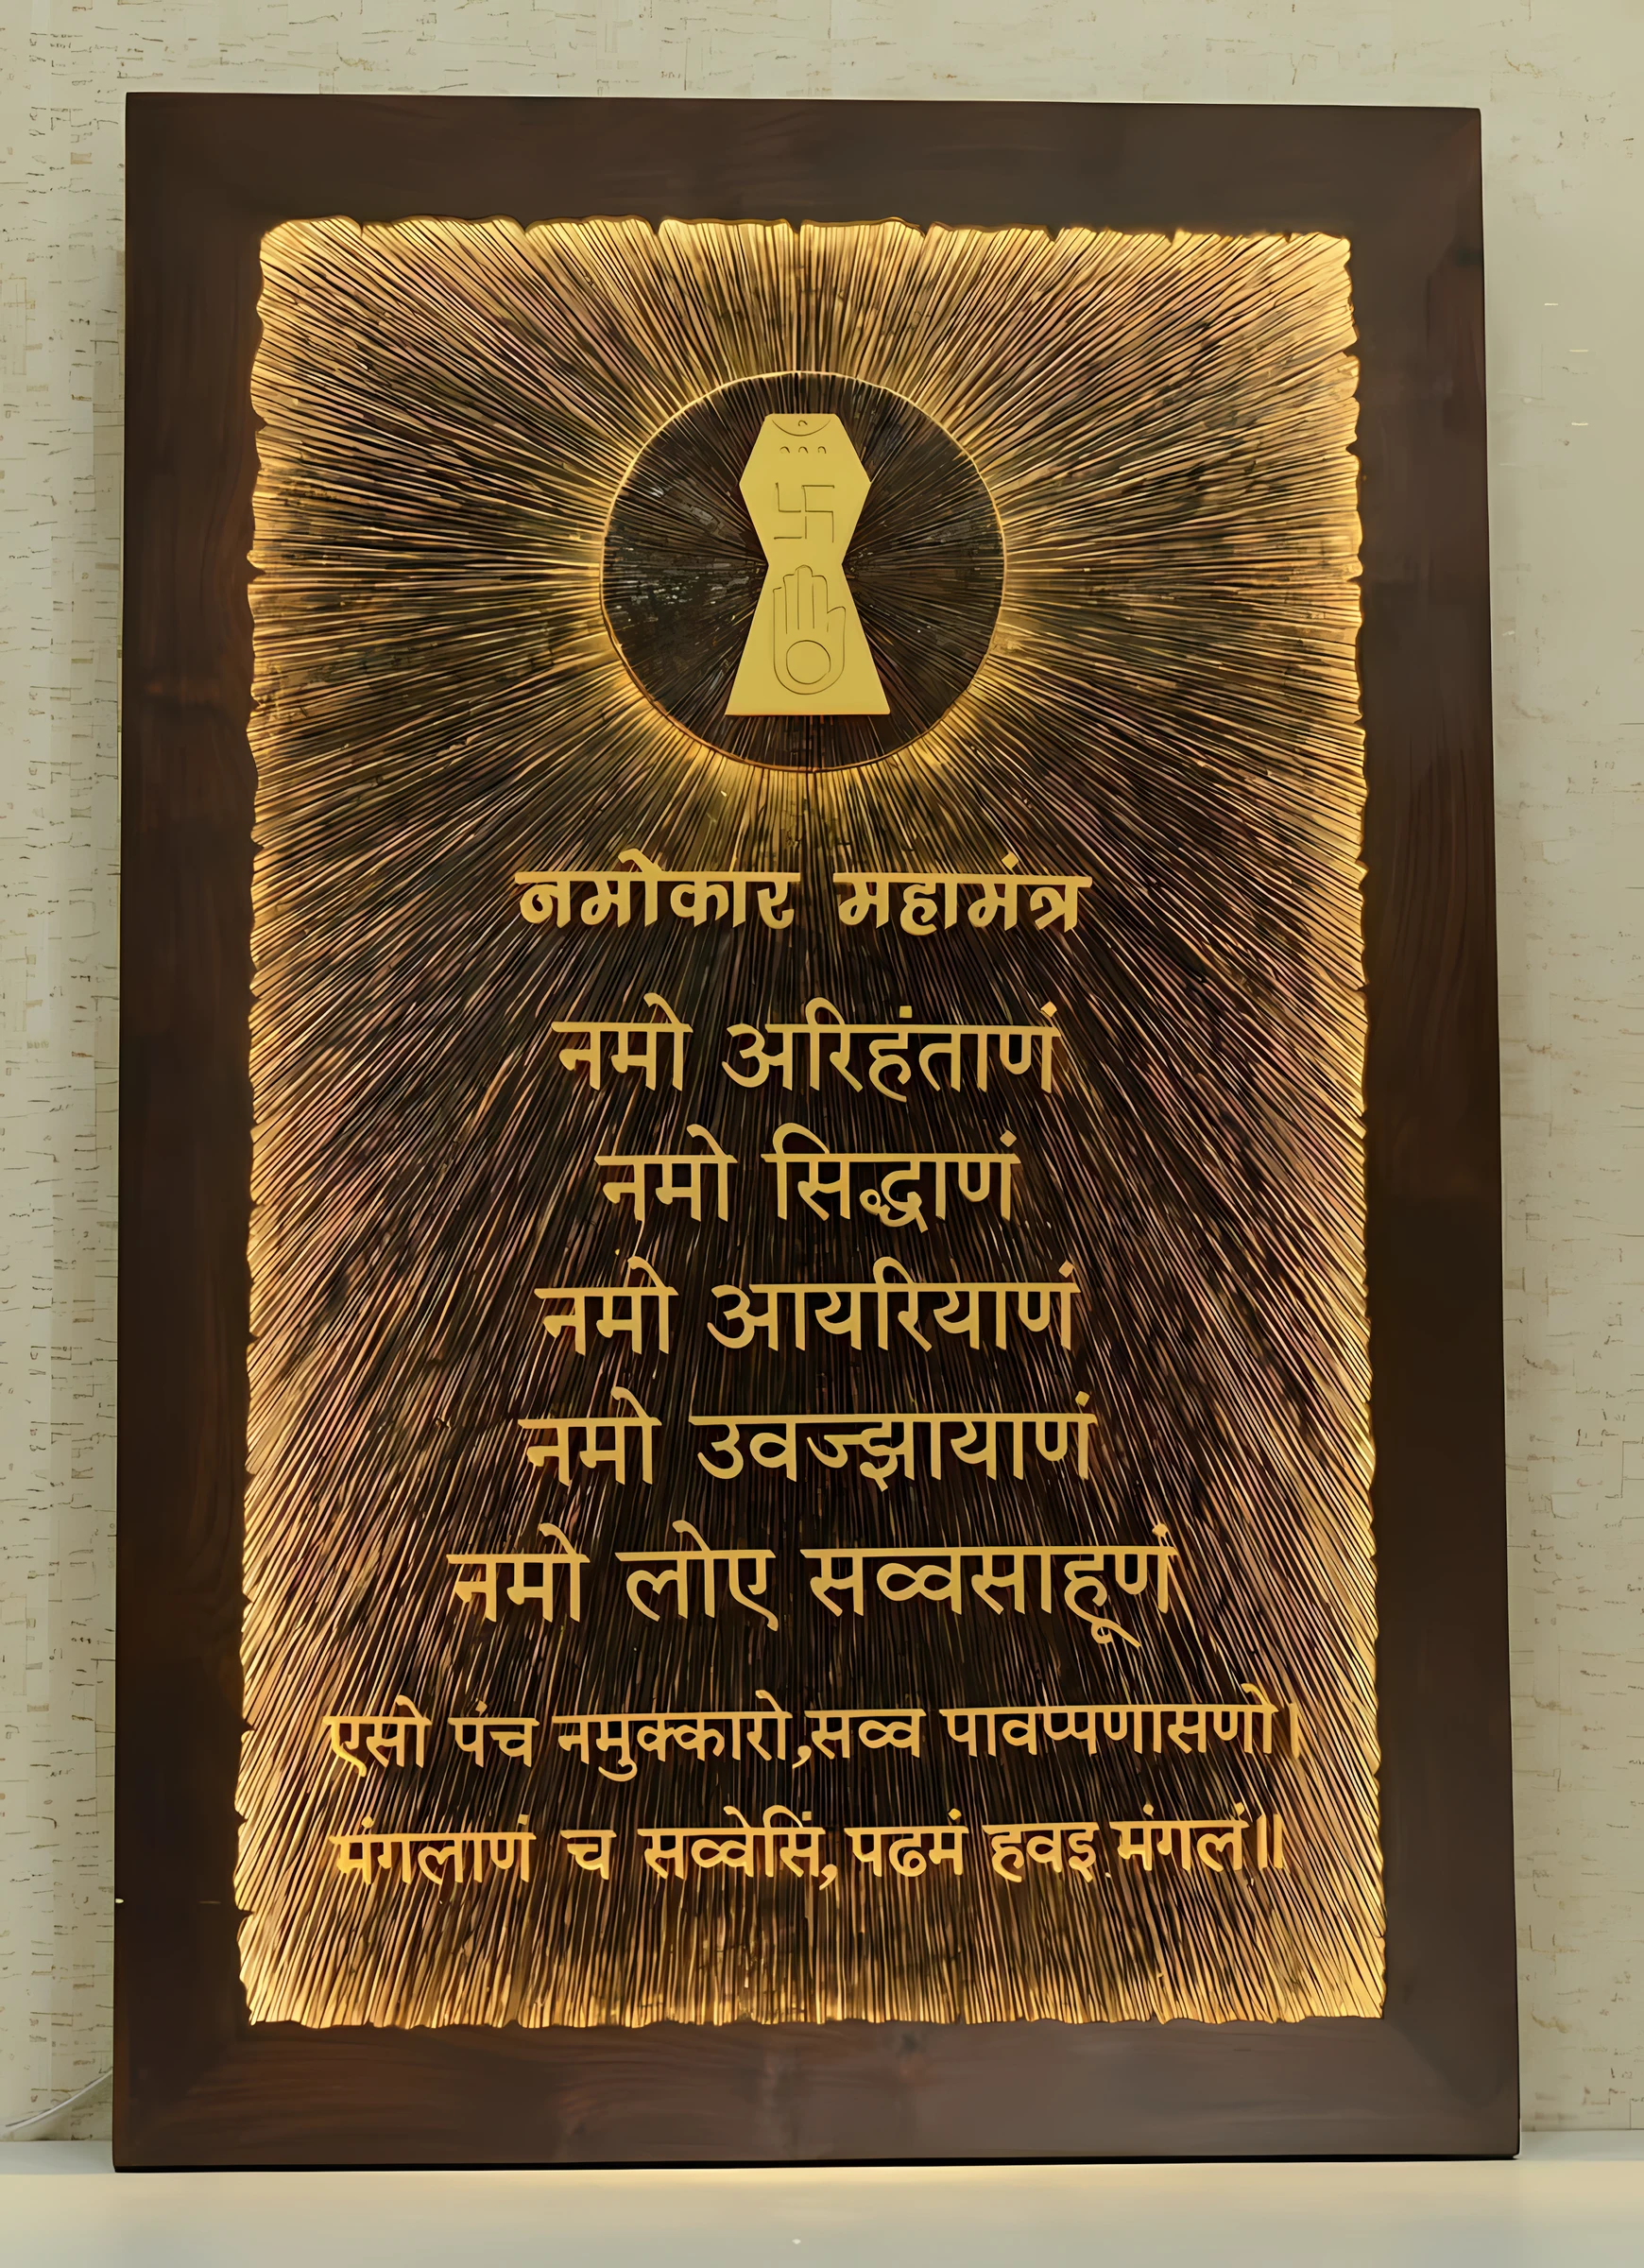 नमोकार महामंत्र
नमो अरिहंताणं
नमो सिद्धाणं
नमो आयरियाणं
नमो उवज्झायाणं
नमो लोए सव्वसाहूणं
एसो पंच नमुक्कारो,सव्व पावप्पणासणो।
मंगलाणं च सव्वेसिं, पढमं हवइ मंगलं॥